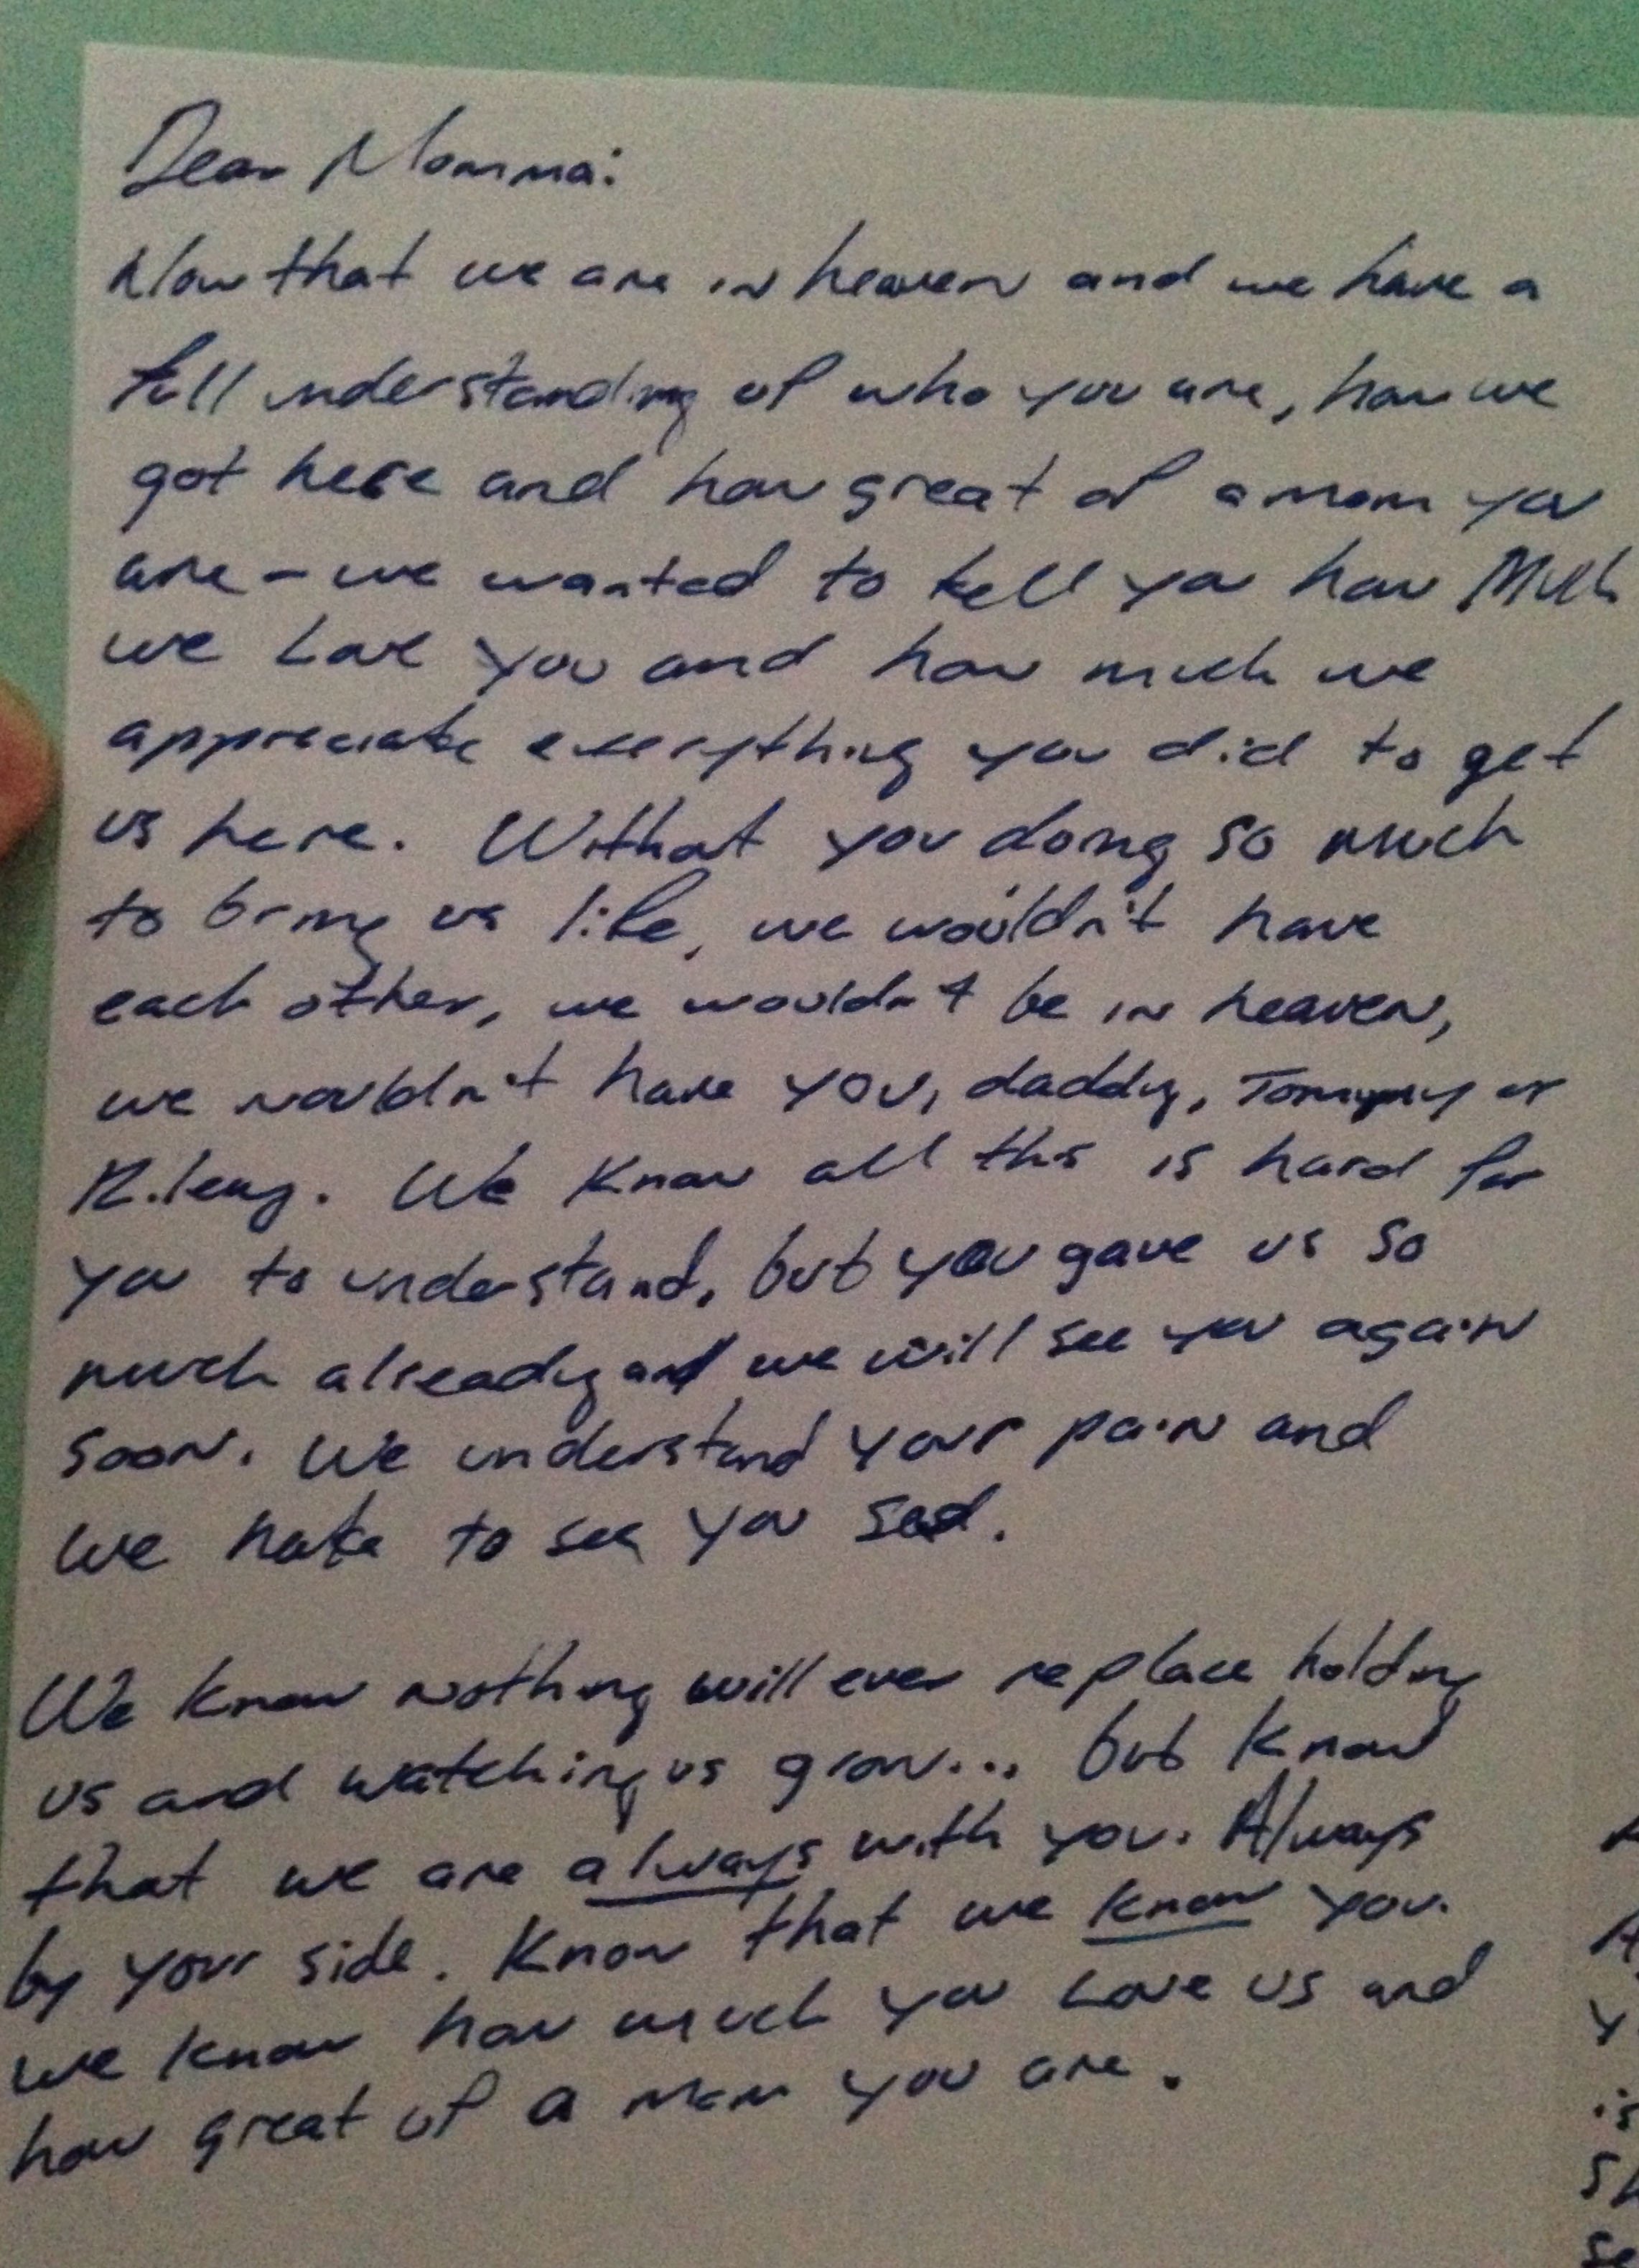 Dear Momma:
Now that we are in heaven and we have a
full understanding of who you are, how we
got here and how great of a mom you
are - we wanted to tell you how Much
we Love you and how much we
appreciate everything you did to get
us here. Without you doing so much
to bring us life, we wouldn't have
each other, we wouldn't be in heaven,
we wouldn't have you, daddy, Tommy or
Riley. We know all this is hard for
you to understand, but you gave us so
much already and we will see you again
soon. We understand your pain and
we hate to see you sad.
We know nothing will ever replace holding
us and watching us grow... but know
that we are always with you. Always
by your side. Know that we know you.
we know how much you Love us and
how great of a mom you are.